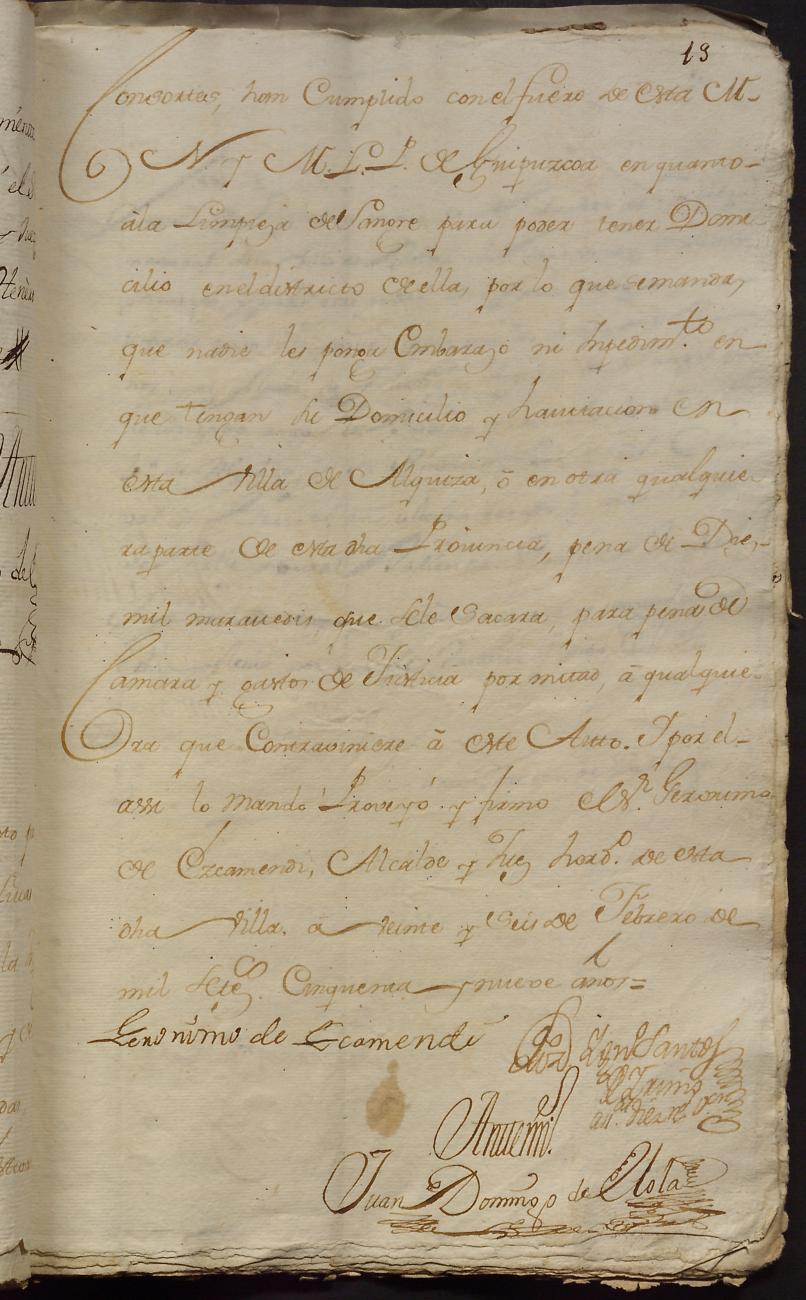 13
Consortes, han Cumplido con el fuero de esta M.
N. y M. L. P. de Guipuzcoa en quanto
ála Limpieza de Sangre para poder tener Domi
cilio en el districto de ella, por lo que se manda,
que nadie les ponga Embarazo ni Impedim.to en
que tengan su Domicilio y havitacion en
esta Villa de Alquiza, ó en otra qualquie
ra parte de esta dha Provincia, pena de Diez
mil maravedis que sele Sacara, para pena de
Camara y gastos de Justicia por mitad, á qualquie
ra que Contraviniere á este Autto. Y por el
assi lo Mandó Proveyó y firmo el S.r Geronimo
de Ezcamendi, Alcalde y Juez hord.o de esta
dha Villa. á veinte y Seis de Febrero de
mil sete.s Cinquenta y nueve años=
Geronimo de Ecamendi
Santos
Antemi
Juan Domingo de Elola